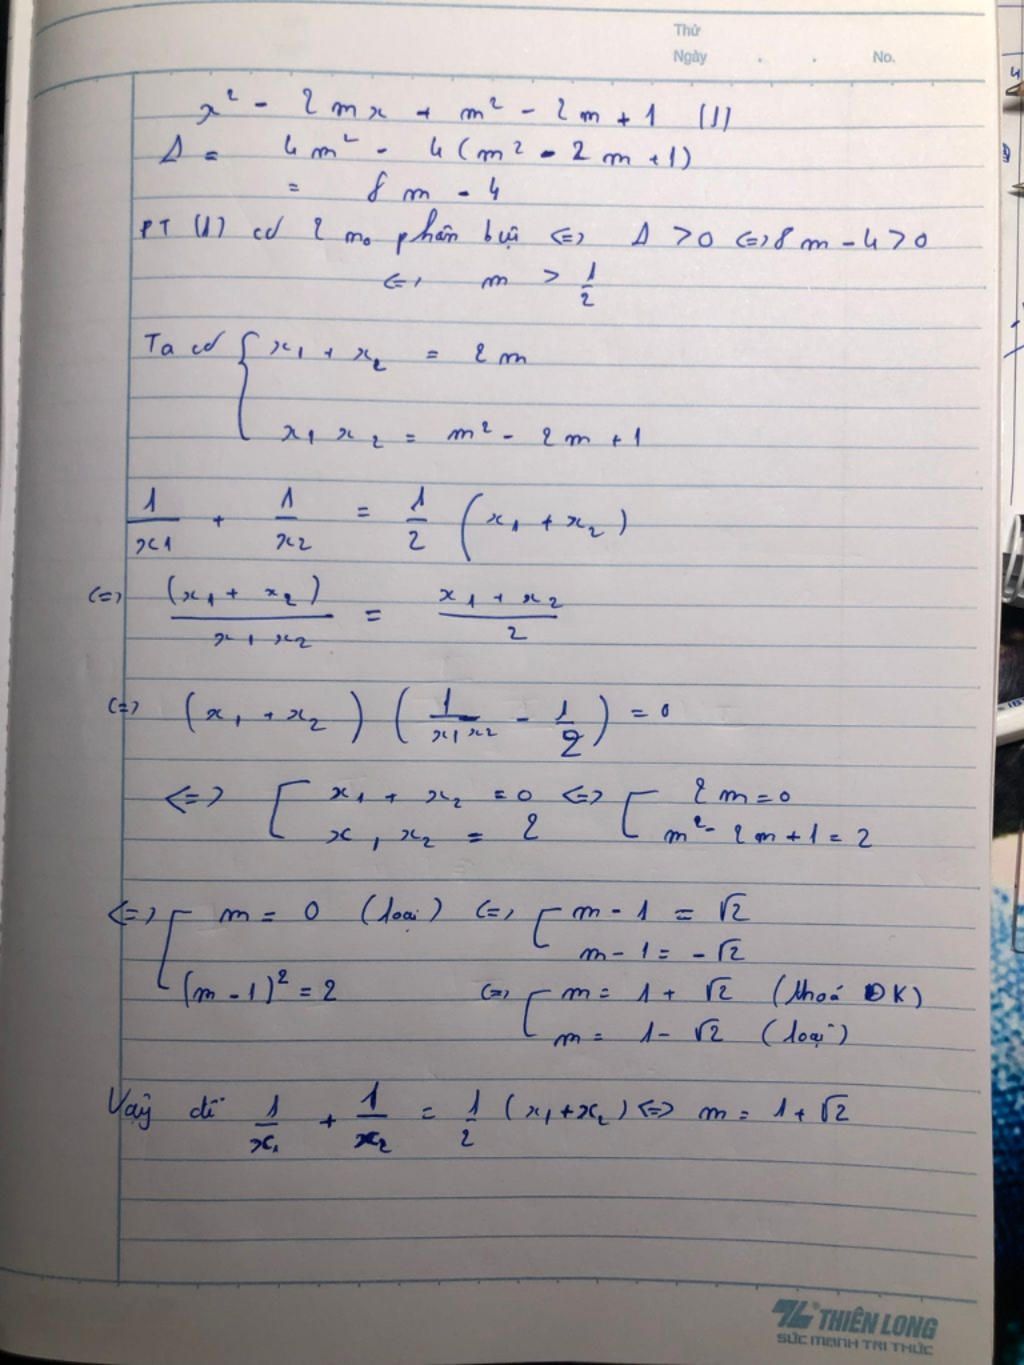 Thứ
Ngày . . No.
x² - 2mx + m² - 2m + 1 (1)
Δ = 4m² - 4(m² - 2m + 1)
= 8m - 4
PT (1) có 2 no phân biệt <=> Δ > 0 <=> 8m - 4 > 0
<=> m > 1/2
Ta có { x₁ + x₂ = 2m
x₁x₂ = m² - 2m + 1
1/x₁ + 1/x₂ = 1/2 (x₁ + x₂)
<=> (x₁ + x₂)/x₁x₂ = x₁ + x₂/2
<=> (x₁ + x₂) (1/x₁x₂ - 1/2) = 0
<=> [ x₁ + x₂ = 0 <=> [ 2m = 0
x₁x₂ = 2 m² - 2m + 1 = 2
<=> [ m = 0 (loại) <=> [ m - 1 = √2
m - 1 = -√2
(m - 1)² = 2 <=> [ m = 1 + √2 (thoả ĐK)
m = 1 - √2 (loại)
Vậy để 1/x₁ + 1/x₂ = 1/2 (x₁ + x₂) <=> m = 1 + √2
TL THIÊN LONG
SỨC MẠNH TRI THỨC